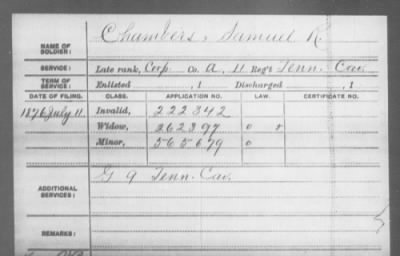 NAME OF SOLDIER: Chambers, Samuel R
SERVICE: Late rank, Corp Co. A, 11 Reg't Tenn. Cav.
TERM OF SERVICE: Enlisted , 1 Discharged , 1
DATE OF FILING. CLASS. APPLICATION NO. LAW. CERTIFICATE NO.
1876 July 11 Invalid, 222342
Widow, 262397
Minor, 565679
ADDITIONAL SERVICES: G 9 Tenn. Cav.
REMARKS: